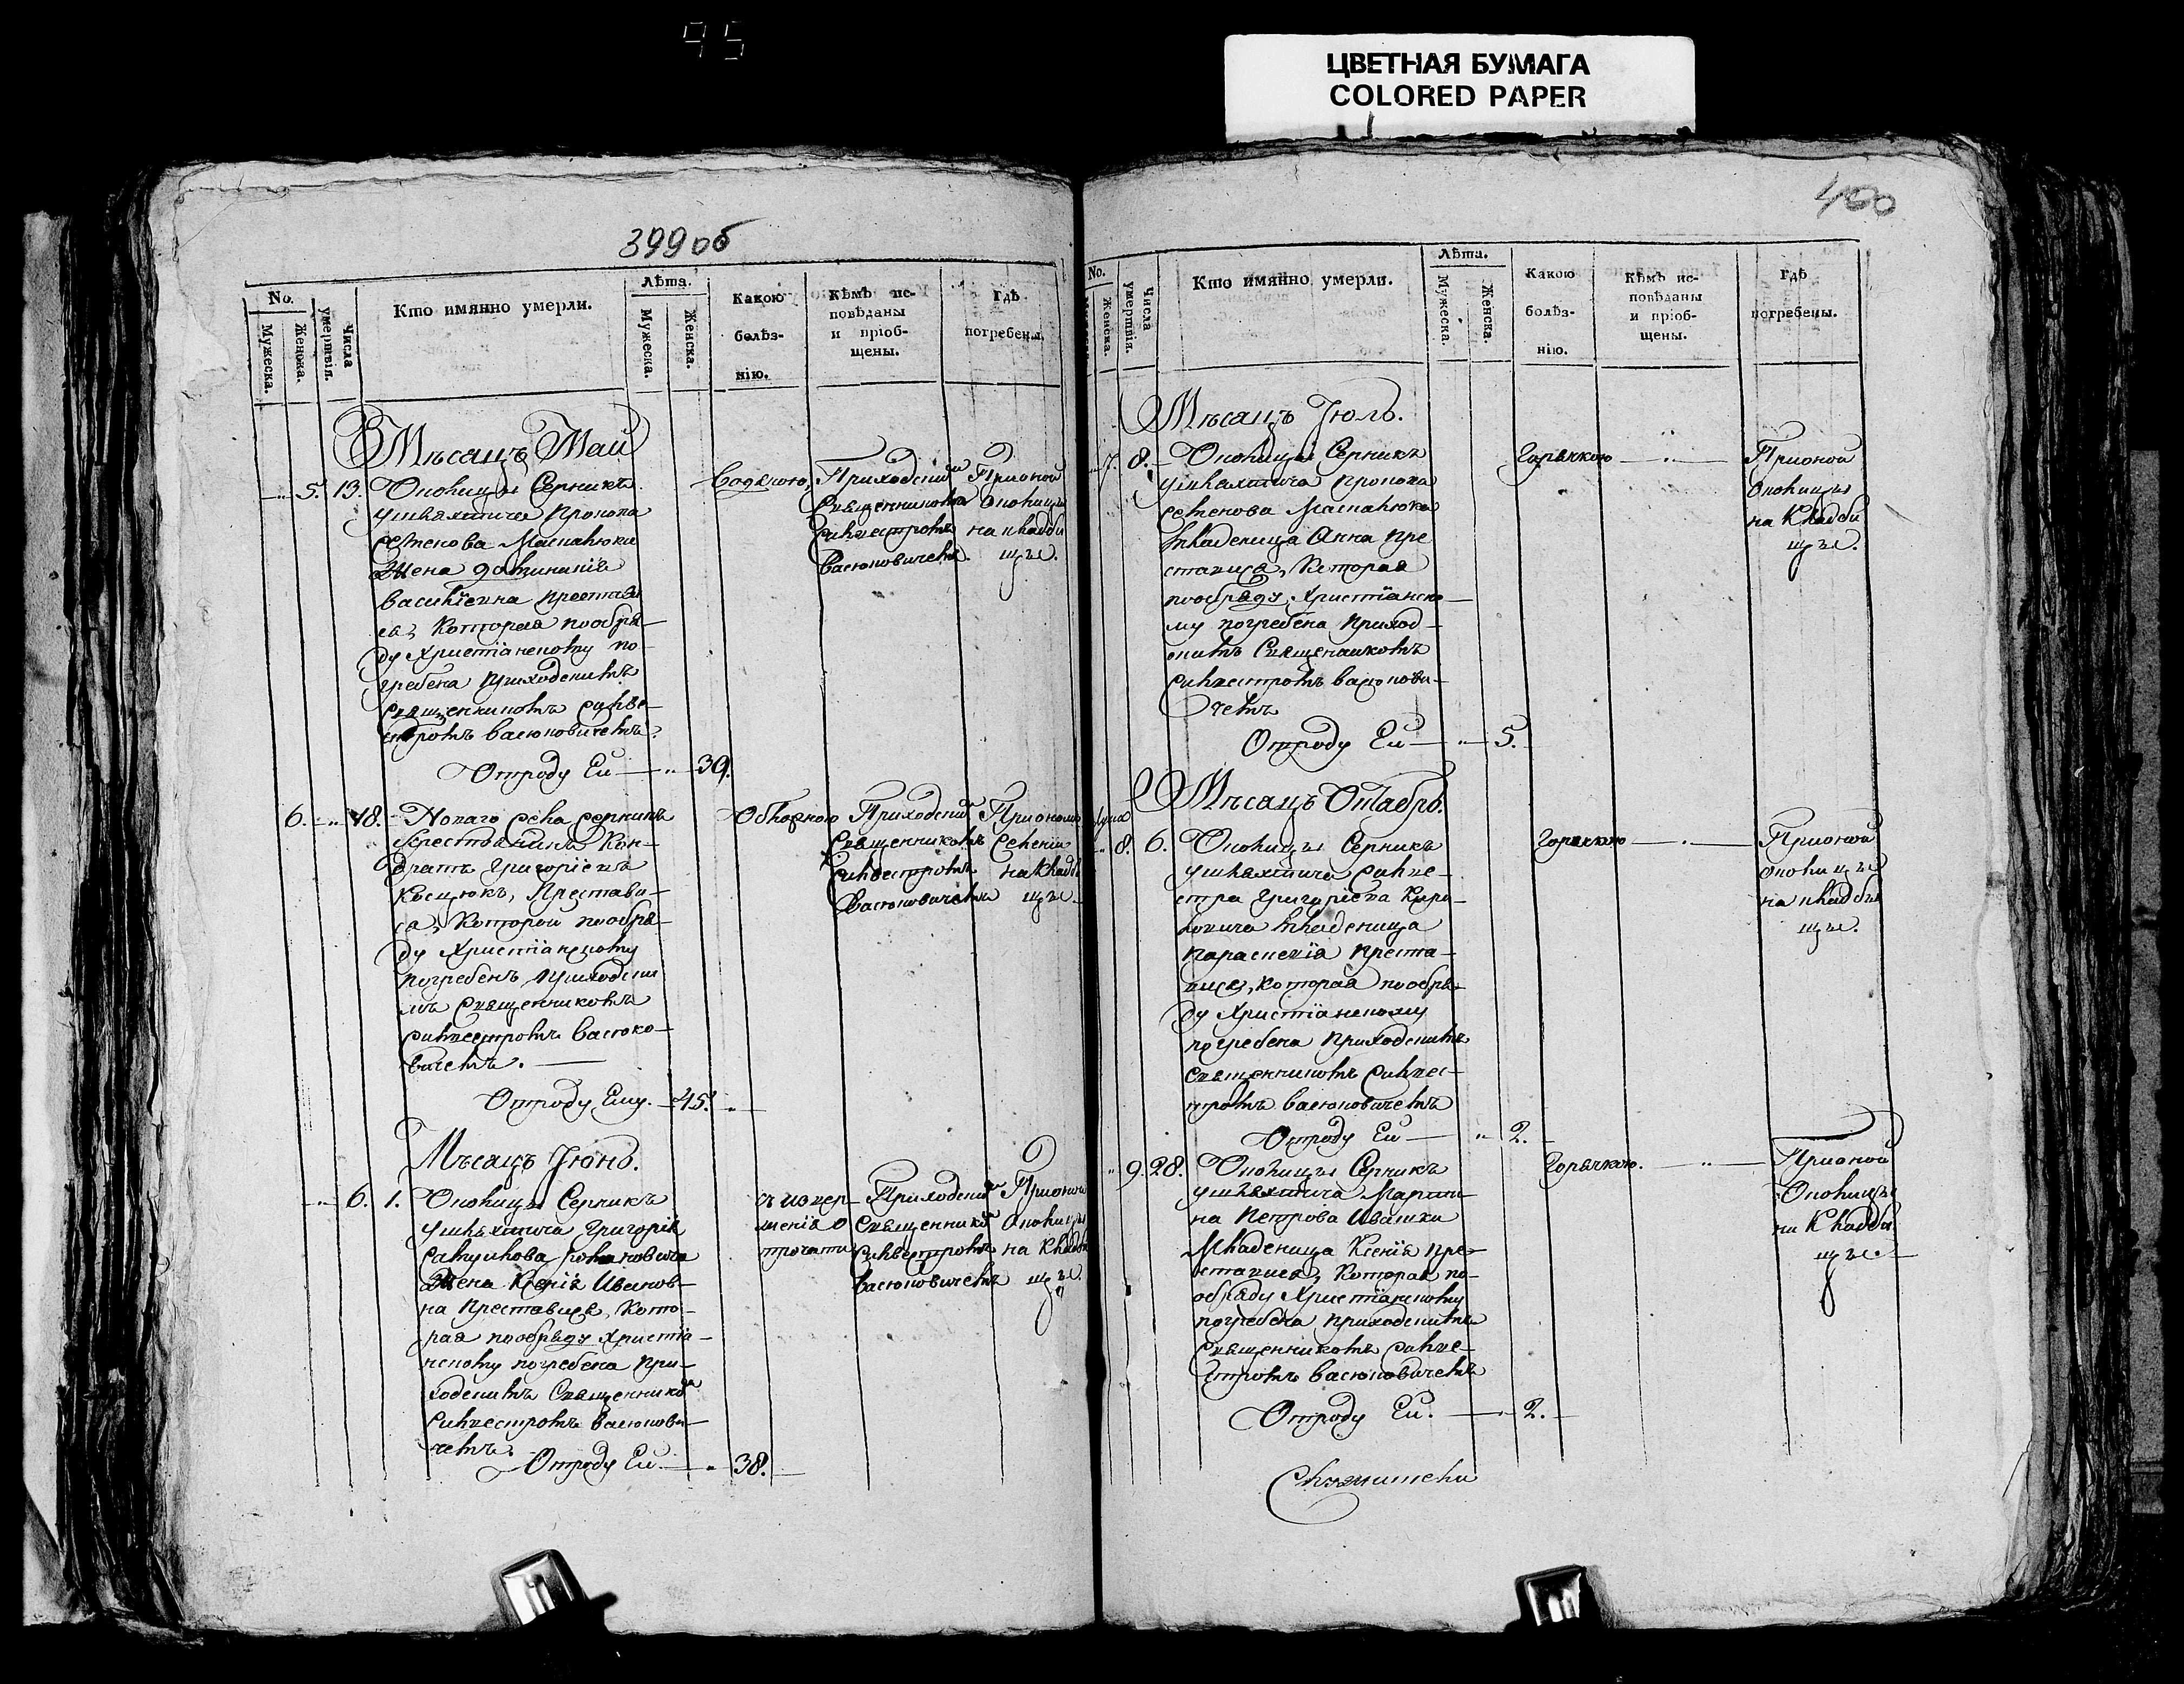 95
ЦВЕТНАЯ БУМАГА
COLORED PAPER
399об
No.
Мужеска.
Женска.
Числа умертвія.
Кто имянно умерли.
Лѣта.
Мужеска.
Женска.
Какою
болѣз-
нію.
Кѣмъ ис-
повѣданы
и пріоб-
щены.
Гдѣ
погребены.
Мѣсацъ Май
5. 13. Околицы Серникъ
Прокопа
Семенова
Жена
Василіевна Престави
са, Которая пообря-
ду Христіанскому по-
гребена Приходскимъ
Священникомъ Силве-
стромъ Васюковичемъ.
Отроду Ей — 39.
Водяною,
Приходскимъ
Священникомъ
Силвестромъ
Васюковичемъ.
Прионой
Околицы
на кладби
щѣ.
6. 18. Тогаго Села Серникъ
Крестьянинъ Кон-
дратъ Григоріевъ
Костюкъ, Престави-
са, Которой пообря-
ду Христіанскому
погребенъ Приходски
мъ Священникомъ
Силвестромъ Васюко-
вичемъ. —
Отроду Ему. — 45.
Приходским
Священникомъ
Силвестромъ
Васюковичемъ
Приономъ
Селеніи
на Кладби
щѣ.
Мѣсацъ Іюнь.
6. 1. Околицы Серникъ
Григорія
Жена Ксенія Иванов-
на Преставися, Кото-
рая пообряду Христіа-
нскому погребена При-
ходскимъ Священником
Силвестромъ Васюкови-
чемъ.
Отроду Ей. — 38.
Приходским
Священником
Силвестромъ
Васюковичемъ
Прионой
Околицы
на Кладби
щѣ.
400
No.
Женска.
Числа умертвія.
Кто имянно умерли.
Лѣта.
Мужеска.
Женска.
Какою
болѣз-
нію.
Кѣмъ ис-
повѣданы
и пріоб-
щены.
Гдѣ
погребены.
Мѣсацъ Іюль.
7. 8. Околицы Серникъ
Прокопа
Семенова
Младеница Анна Пре
ставися, Которая
пообряду Христіанско-
му погребена Приход-
скимъ Священникомъ
Силвестромъ Васюкови-
чемъ
Отроду Ей — 5.
Горячкою
Прионой
Околицы
на Кладби
щѣ.
Мѣсацъ Октабрь.
8. 6. Околицы Серникъ
Силве-
стра Григоріева
Младеница
Параскевія Преста-
вися, Которая пообря-
ду Христіанскому
погребена Приходскимъ
Священникомъ Силвес-
тромъ Васюковичемъ
Отроду Ей — 2.
Горячкою
Прионой
Околицы
на кладби
щѣ.
9. 28. Околицы Серникъ
Марти-
на Петрова Ивашки
Младеница Ксенія Пре-
ставися, Которая по-
обряду Христіанскому
погребена Приходскимъ
Священникомъ Силве-
стромъ Васюковичемъ
Отроду Ей. — 2.
Горячкою.
Прионой
Околицы
на Кладби
щѣ.